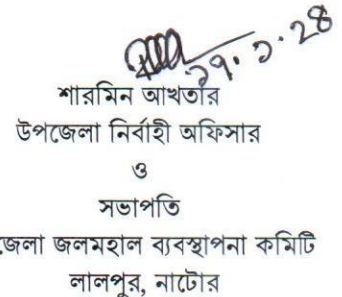 ২৭.১.২৪
শারমিন আখতার
উপজেলা নির্বাহী অফিসার
ও
সভাপতি
জেলা জলমহাল ব্যবস্থাপনা কমিটি
লালপুর, নাটোর